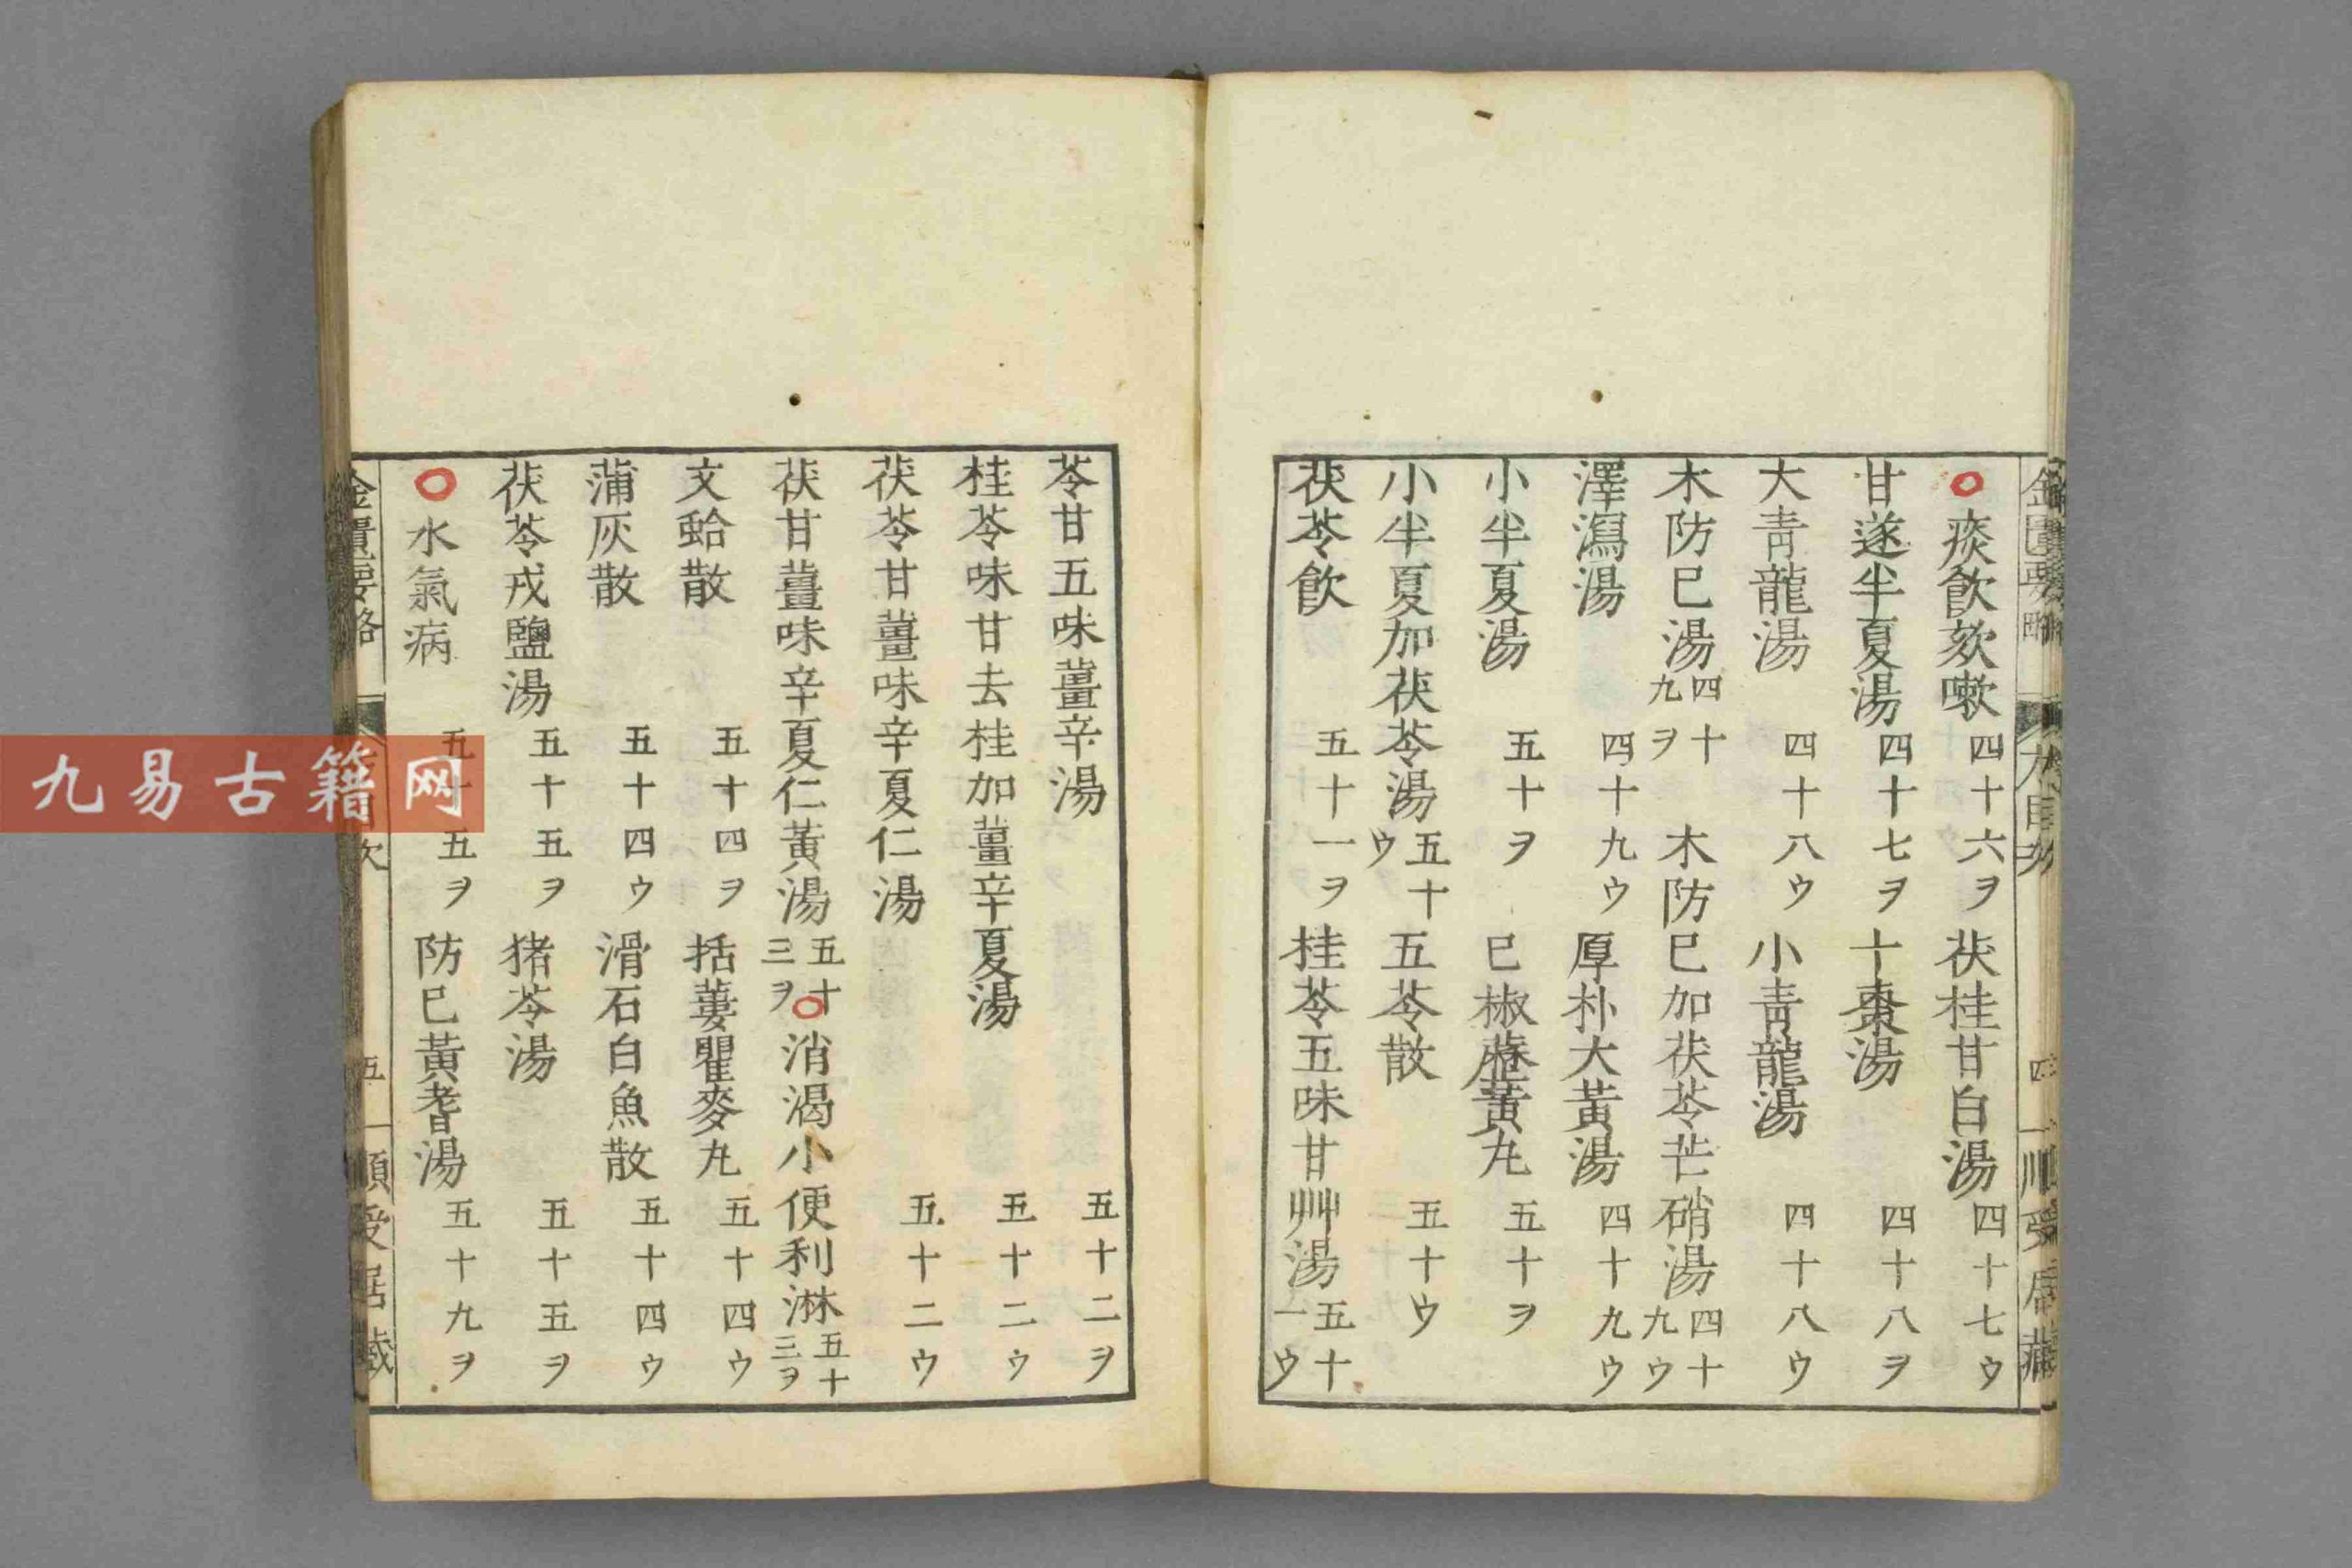 金匱要略
方目次
四
順受居藏
痰飲欬嗽 四十六ヲ 茯桂甘白湯 四十七ウ
甘遂半夏湯 四十七ヲ 十棗湯 四十八ヲ
大靑龍湯 四十八ウ 小靑龍湯 四十八ウ
木防已湯 四十九ヲ 木防已加茯苓芒硝湯 四十九ウ
澤瀉湯 四十九ウ 厚朴大黃湯 四十九ウ
小半夏湯 五十ヲ 已椒藶黃丸 五十ヲ
小半夏加茯苓湯 五十ウ 五苓散 五十ウ
茯苓飮 五十一ヲ 桂苓五味甘艸湯 五十一ウ
苓甘五味薑辛湯 五十二ヲ
桂苓味甘去桂加薑辛夏湯 五十二ウ
茯苓甘薑味辛夏仁湯 五十二ウ
茯甘薑味辛夏仁黃湯 五十三ヲ 消渴小便利淋 五十三ヲ
文蛤散 五十四ヲ 括蔞瞿麥丸 五十四ウ
蒲灰散 五十四ウ 滑石白魚散 五十四ウ
茯苓戎鹽湯 五十五ヲ 猪苓湯 五十五ヲ
水氣病 五十五ヲ 防已黃耆湯 五十九ヲ
金匱要略
目次
五
順受居藏
九易古籍网